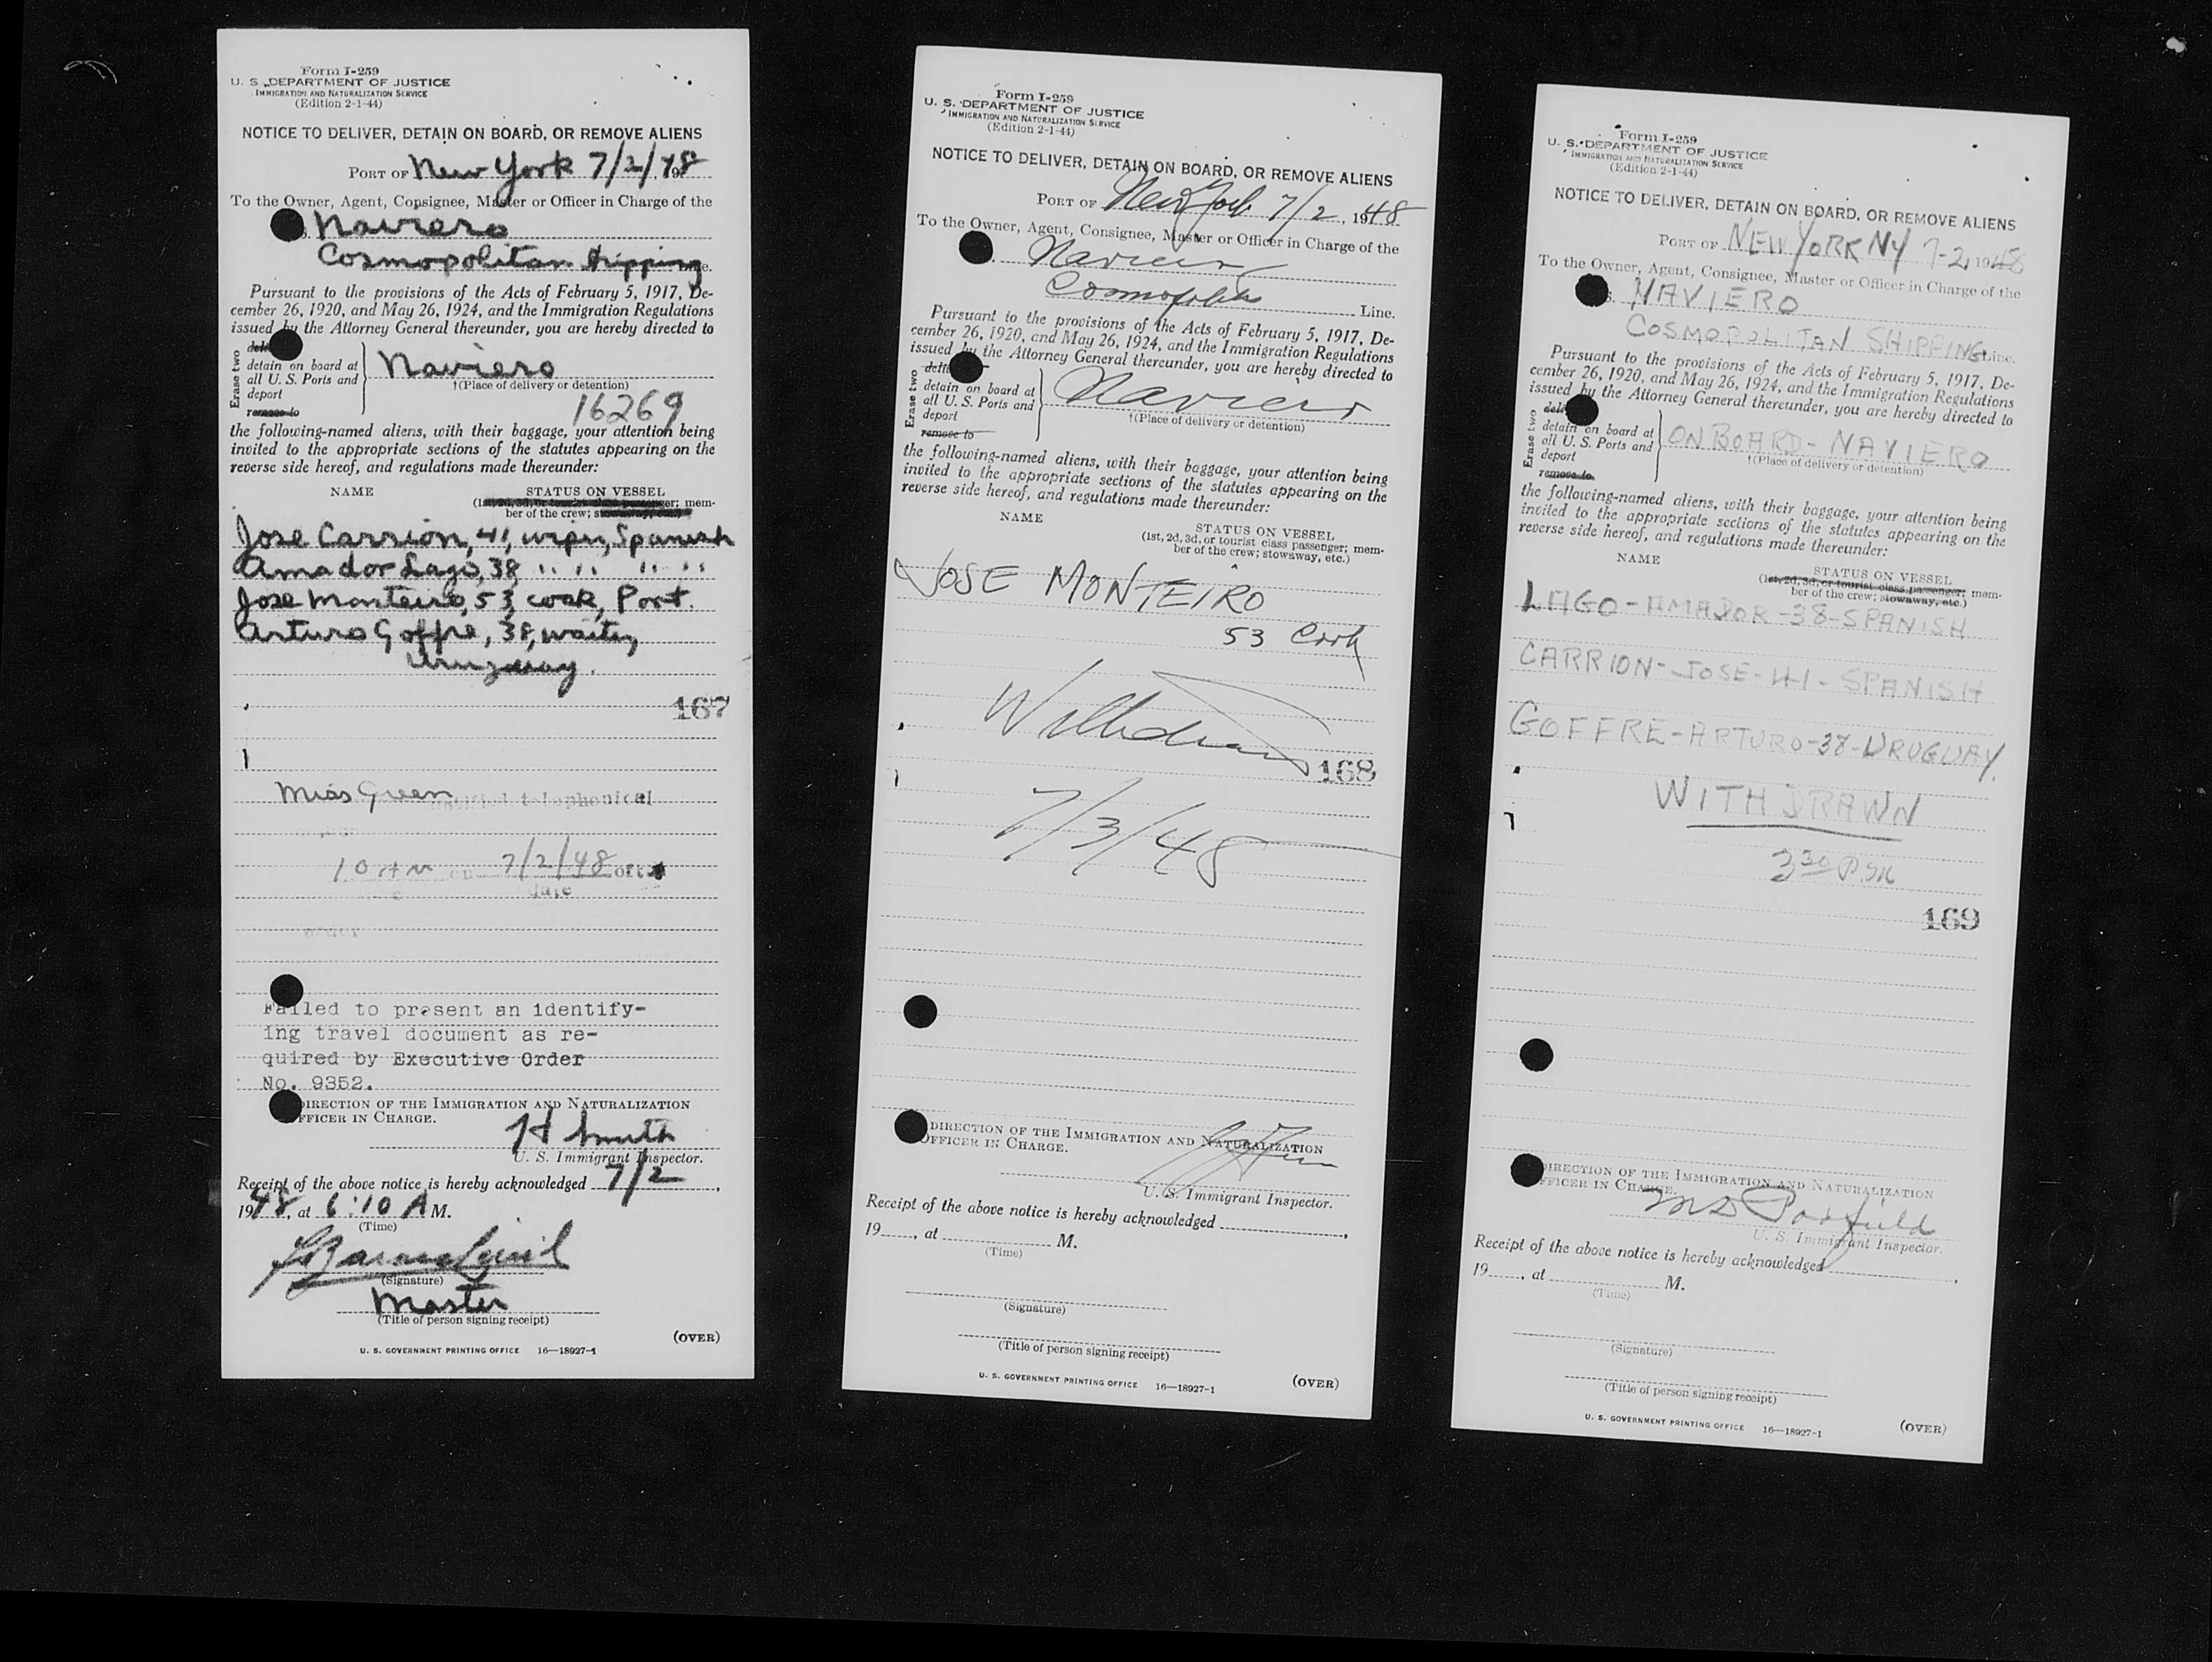 Form I-259
U. S. DEPARTMENT OF JUSTICE
IMMIGRATION AND NATURALIZATION SERVICE
(Edition 2-1-44)
NOTICE TO DELIVER, DETAIN ON BOARD, OR REMOVE ALIENS
PORT OF New York 7/2/48
To the Owner, Agent, Consignee, Master or Officer in Charge of the
Naviero
Cosmopolitan Shipping
Pursuant to the provisions of the Acts of February 5, 1917, De-
cember 26, 1920, and May 26, 1924, and the Immigration Regulations
issued by the Attorney General thereunder, you are hereby directed to
Erase two
detain on board at
all U. S. Ports and
deport
remove to
Naviero
†(Place of delivery or detention)
16269
the following-named aliens, with their baggage, your attention being
invited to the appropriate sections of the statutes appearing on the
reverse side hereof, and regulations made thereunder:
NAME STATUS ON VESSEL
(1st, 2d, 3d, or tourist class passenger; mem-
ber of the crew; stowaway, etc.)
Jose Carrion, 41, wiper, Spanish
Amador Lago, 38, " " " "
Jose Monteiro, 53, cook, Port.
Arturo Goffre, 38, waiter,
Uruguay.
167
Miss Green notified telephonical
10 AM on 7/2/48 of
date
order
Failed to present an identify-
ing travel document as re-
quired by Executive Order
No. 9352.
DIRECTION OF THE IMMIGRATION AND NATURALIZATION
OFFICER IN CHARGE.
H Smith
U. S. Immigrant Inspector.
Receipt of the above notice is hereby acknowledged 7/2,
1948, at 6:10 A M.
(Time)
(Signature)
Master
(Title of person signing receipt)
(OVER)
U. S. GOVERNMENT PRINTING OFFICE 16—18927-1
Form I-259
U. S. DEPARTMENT OF JUSTICE
IMMIGRATION AND NATURALIZATION SERVICE
(Edition 2-1-44)
NOTICE TO DELIVER, DETAIN ON BOARD, OR REMOVE ALIENS
PORT OF New York 7/2, 1948
To the Owner, Agent, Consignee, Master or Officer in Charge of the
Naviero
Cosmopolitan Line.
Pursuant to the provisions of the Acts of February 5, 1917, De-
cember 26, 1920, and May 26, 1924, and the Immigration Regulations
issued by the Attorney General thereunder, you are hereby directed to
Erase two
detain on board at
all U. S. Ports and
deport
remove to
Naviero
†(Place of delivery or detention)
the following-named aliens, with their baggage, your attention being
invited to the appropriate sections of the statutes appearing on the
reverse side hereof, and regulations made thereunder:
NAME STATUS ON VESSEL
(1st, 2d, 3d, or tourist class passenger; mem-
ber of the crew; stowaway, etc.)
JOSE MONTEIRO
53 Cook
Withdrawn
168
7/3/48
DIRECTION OF THE IMMIGRATION AND NATURALIZATION
OFFICER IN CHARGE.
U. S. Immigrant Inspector.
Receipt of the above notice is hereby acknowledged
19, at M.
(Time)
(Signature)
(Title of person signing receipt)
U. S. GOVERNMENT PRINTING OFFICE 16—18927-1 (OVER)
Form I-259
U. S. DEPARTMENT OF JUSTICE
IMMIGRATION AND NATURALIZATION SERVICE
(Edition 2-1-44)
NOTICE TO DELIVER, DETAIN ON BOARD, OR REMOVE ALIENS
PORT OF NEW YORK NY 7-2, 1948
To the Owner, Agent, Consignee, Master or Officer in Charge of the
NAVIERO
COSMOPOLITAN SHIPPING Line.
Pursuant to the provisions of the Acts of February 5, 1917, De-
cember 26, 1920, and May 26, 1924, and the Immigration Regulations
issued by the Attorney General thereunder, you are hereby directed to
Erase two
detain on board at
all U. S. Ports and
deport
remove to
ON BOARD - NAVIERO
†(Place of delivery or detention)
the following-named aliens, with their baggage, your attention being
invited to the appropriate sections of the statutes appearing on the
reverse side hereof, and regulations made thereunder:
NAME STATUS ON VESSEL
(1st, 2d, 3d, or tourist class passenger; mem-
ber of the crew; stowaway, etc.)
LAGO - AMADOR - 38 - SPANISH
CARRION - JOSE - 41 - SPANISH
GOFFRE - ARTURO - 38 - URUGUAY.
WITHDRAWN
3 30 P.M
169
DIRECTION OF THE IMMIGRATION AND NATURALIZATION
OFFICER IN CHARGE.
U. S. Immigrant Inspector.
Receipt of the above notice is hereby acknowledged
19, at M.
(Time)
(Signature)
(Title of person signing receipt)
U. S. GOVERNMENT PRINTING OFFICE 16—18927-1 (OVER)